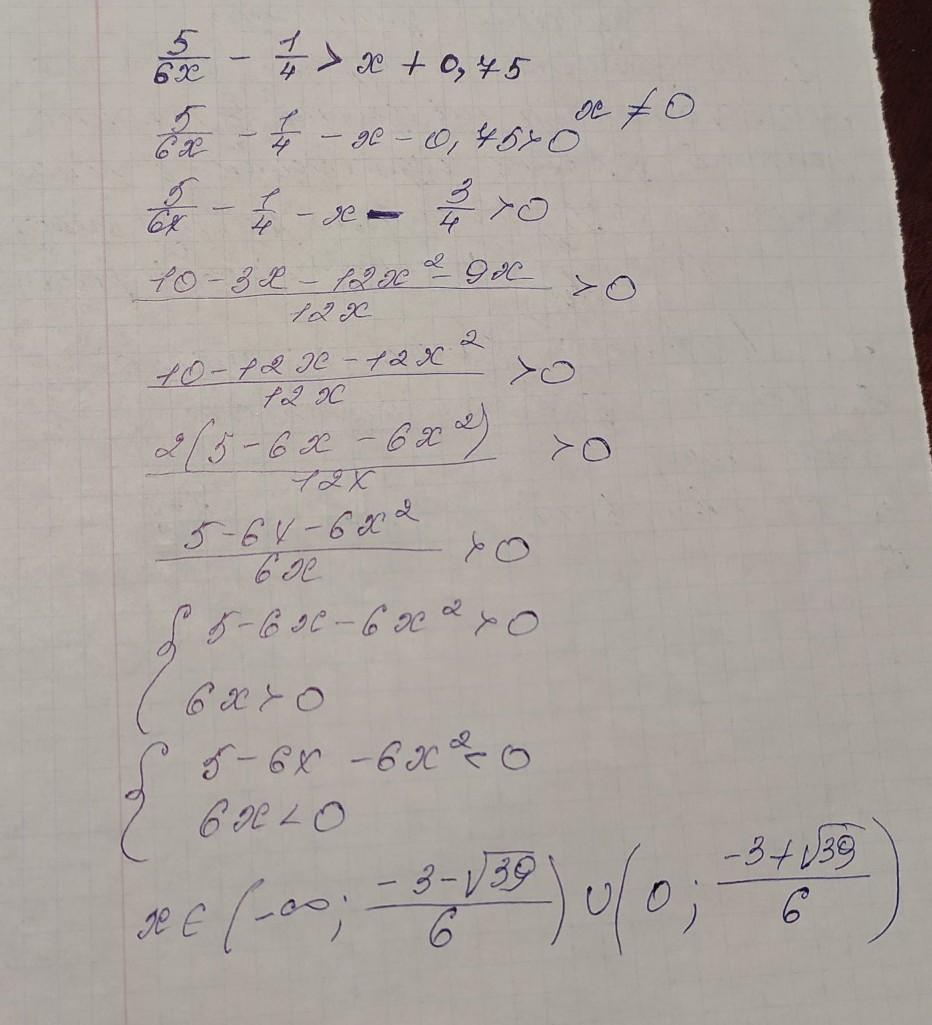 5/6x - 1/4 > x + 0,75
5/6x - 1/4 - x - 0,75 > 0 x ≠ 0
5/6x - 1/4 - x - 3/4 > 0
(10 - 3x - 12x² - 9x)/12x > 0
(10 - 12x - 12x²)/12x > 0
2(5 - 6x - 6x²)/12x > 0
(5 - 6x - 6x²)/6x > 0
{ 5 - 6x - 6x² > 0
6x > 0
{ 5 - 6x - 6x² < 0
6x < 0
x ∈ (-∞; (-3-√39)/6) ∪ (0; (-3+√39)/6)